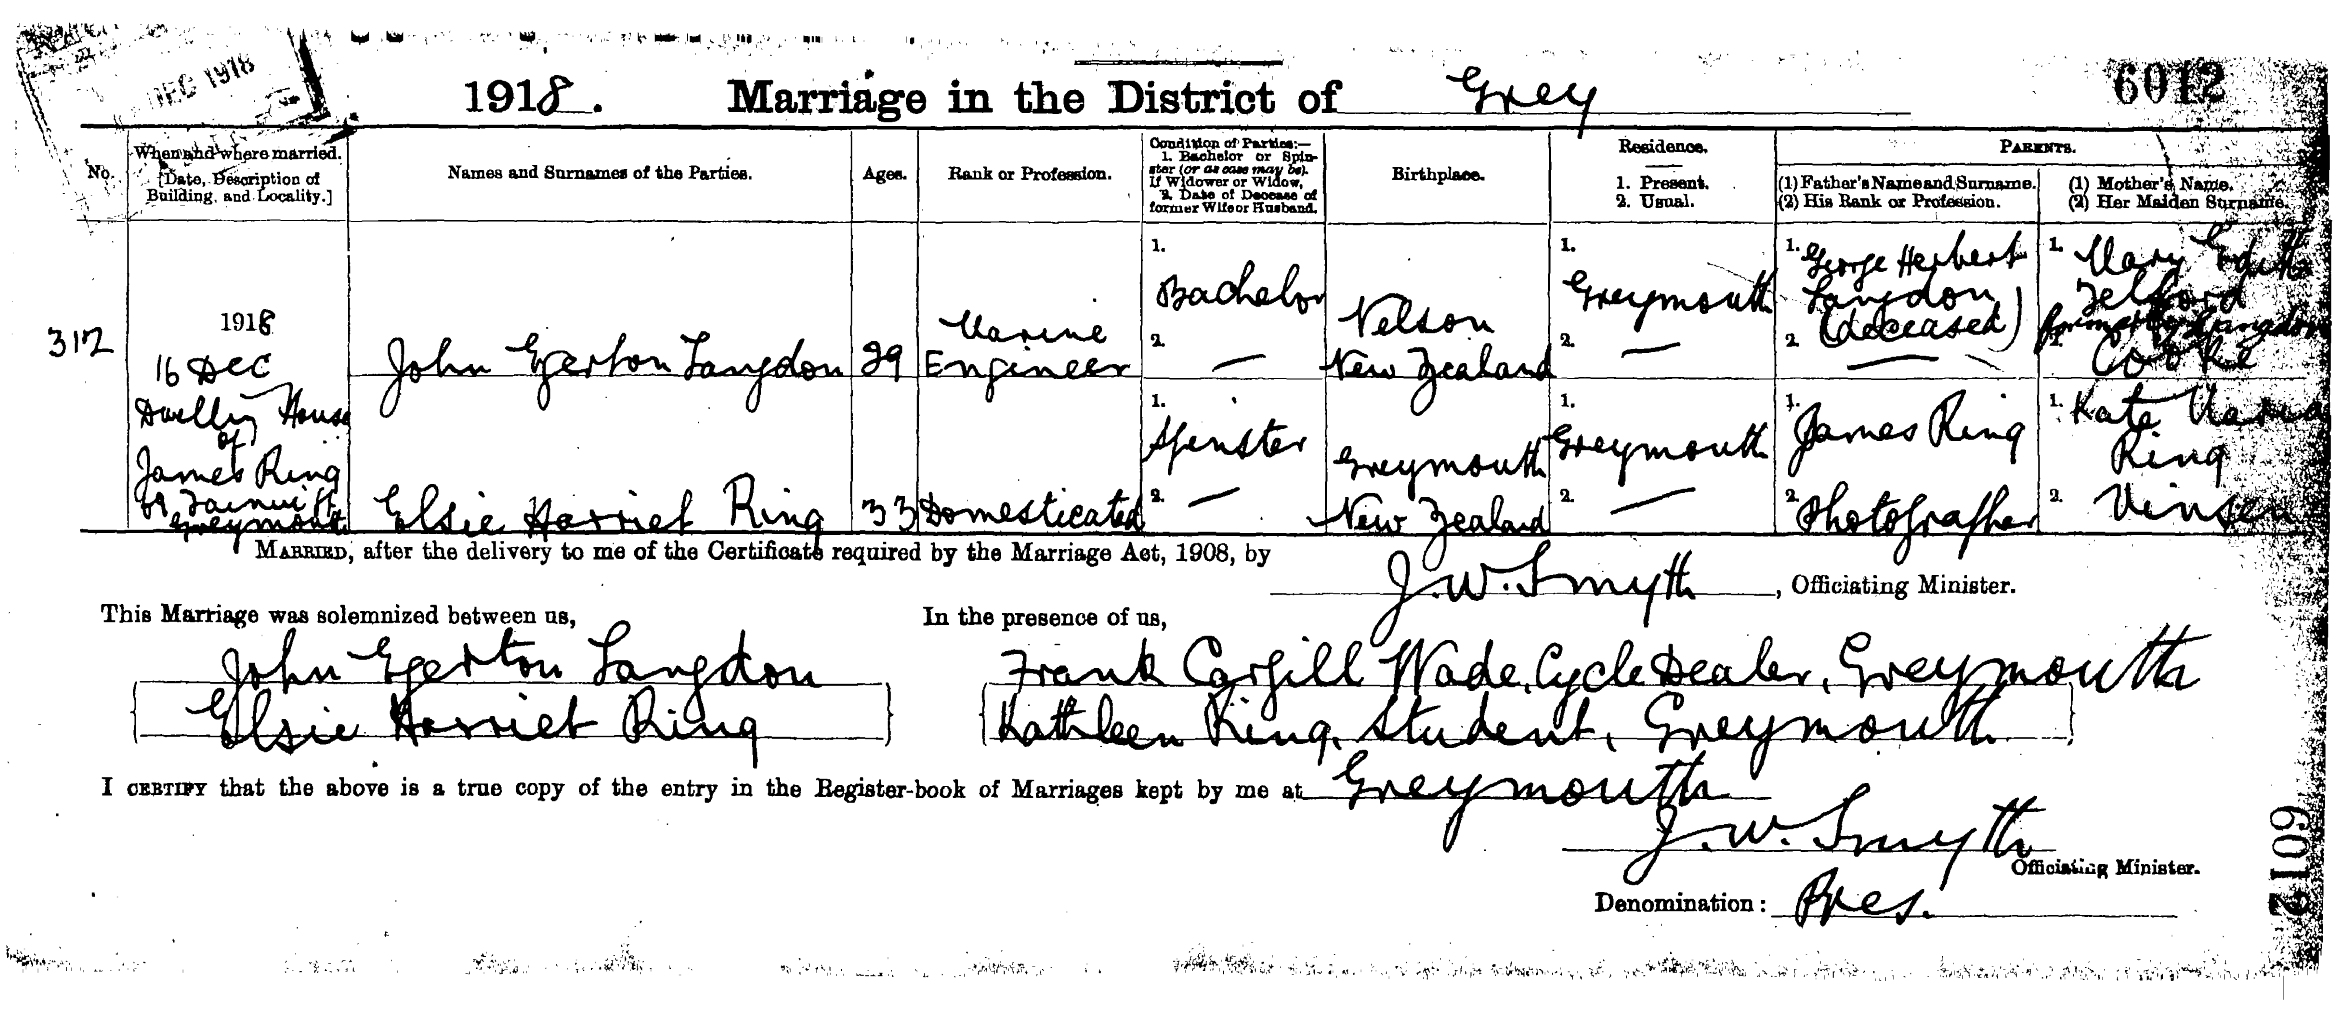 DEC 1918
1918. Marriage in the District of Grey
6012
No.
When and where married.
[Date, Description of
Building, and Locality.]
Names and Surnames of the Parties.
Ages.
Rank or Profession.
Condition of Parties:—
1. Bachelor or Spin-
ster (or as case may be).
If Widower or Widow,
2. Date of Decease of
former Wife or Husband.
Birthplace.
Residence.
1. Present.
2. Usual.
PARENTS.
(1) Father's Name and Surname.
(2) His Rank or Profession.
(1) Mother's Name.
(2) Her Maiden Surname.
312
1918
16 Dec
Dwelling House
of
James Ring
Tainui St
Greymouth
John Egerton Langdon
29
Marine
Engineer
1.
Bachelor
2. —
Nelson
New Zealand
1.
Greymouth
2. —
1. George Herbert
Langdon
(deceased)
2. —
1. Mary Edith
Telford
formerly Langdon
2. Cooke
Elsie Harriet Ring
33
Domesticated
1.
Spinster
2. —
Greymouth
New Zealand
1.
Greymouth
2. —
1.
James Ring
2. Photographer
1. Kate Maria
Ring
2. Vinsen
MARRIED, after the delivery to me of the Certificate required by the Marriage Act, 1908, by
J. W. Smyth, Officiating Minister.
This Marriage was solemnized between us,
John Egerton Langdon
Elsie Harriet Ring
In the presence of us,
Frank Cargill Wade, Cycle Dealer, Greymouth
Kathleen Ring, Student, Greymouth
I CERTIFY that the above is a true copy of the entry in the Register-book of Marriages kept by me at Greymouth
J. W. Smyth
Officiating Minister.
Denomination: Pres.
6012